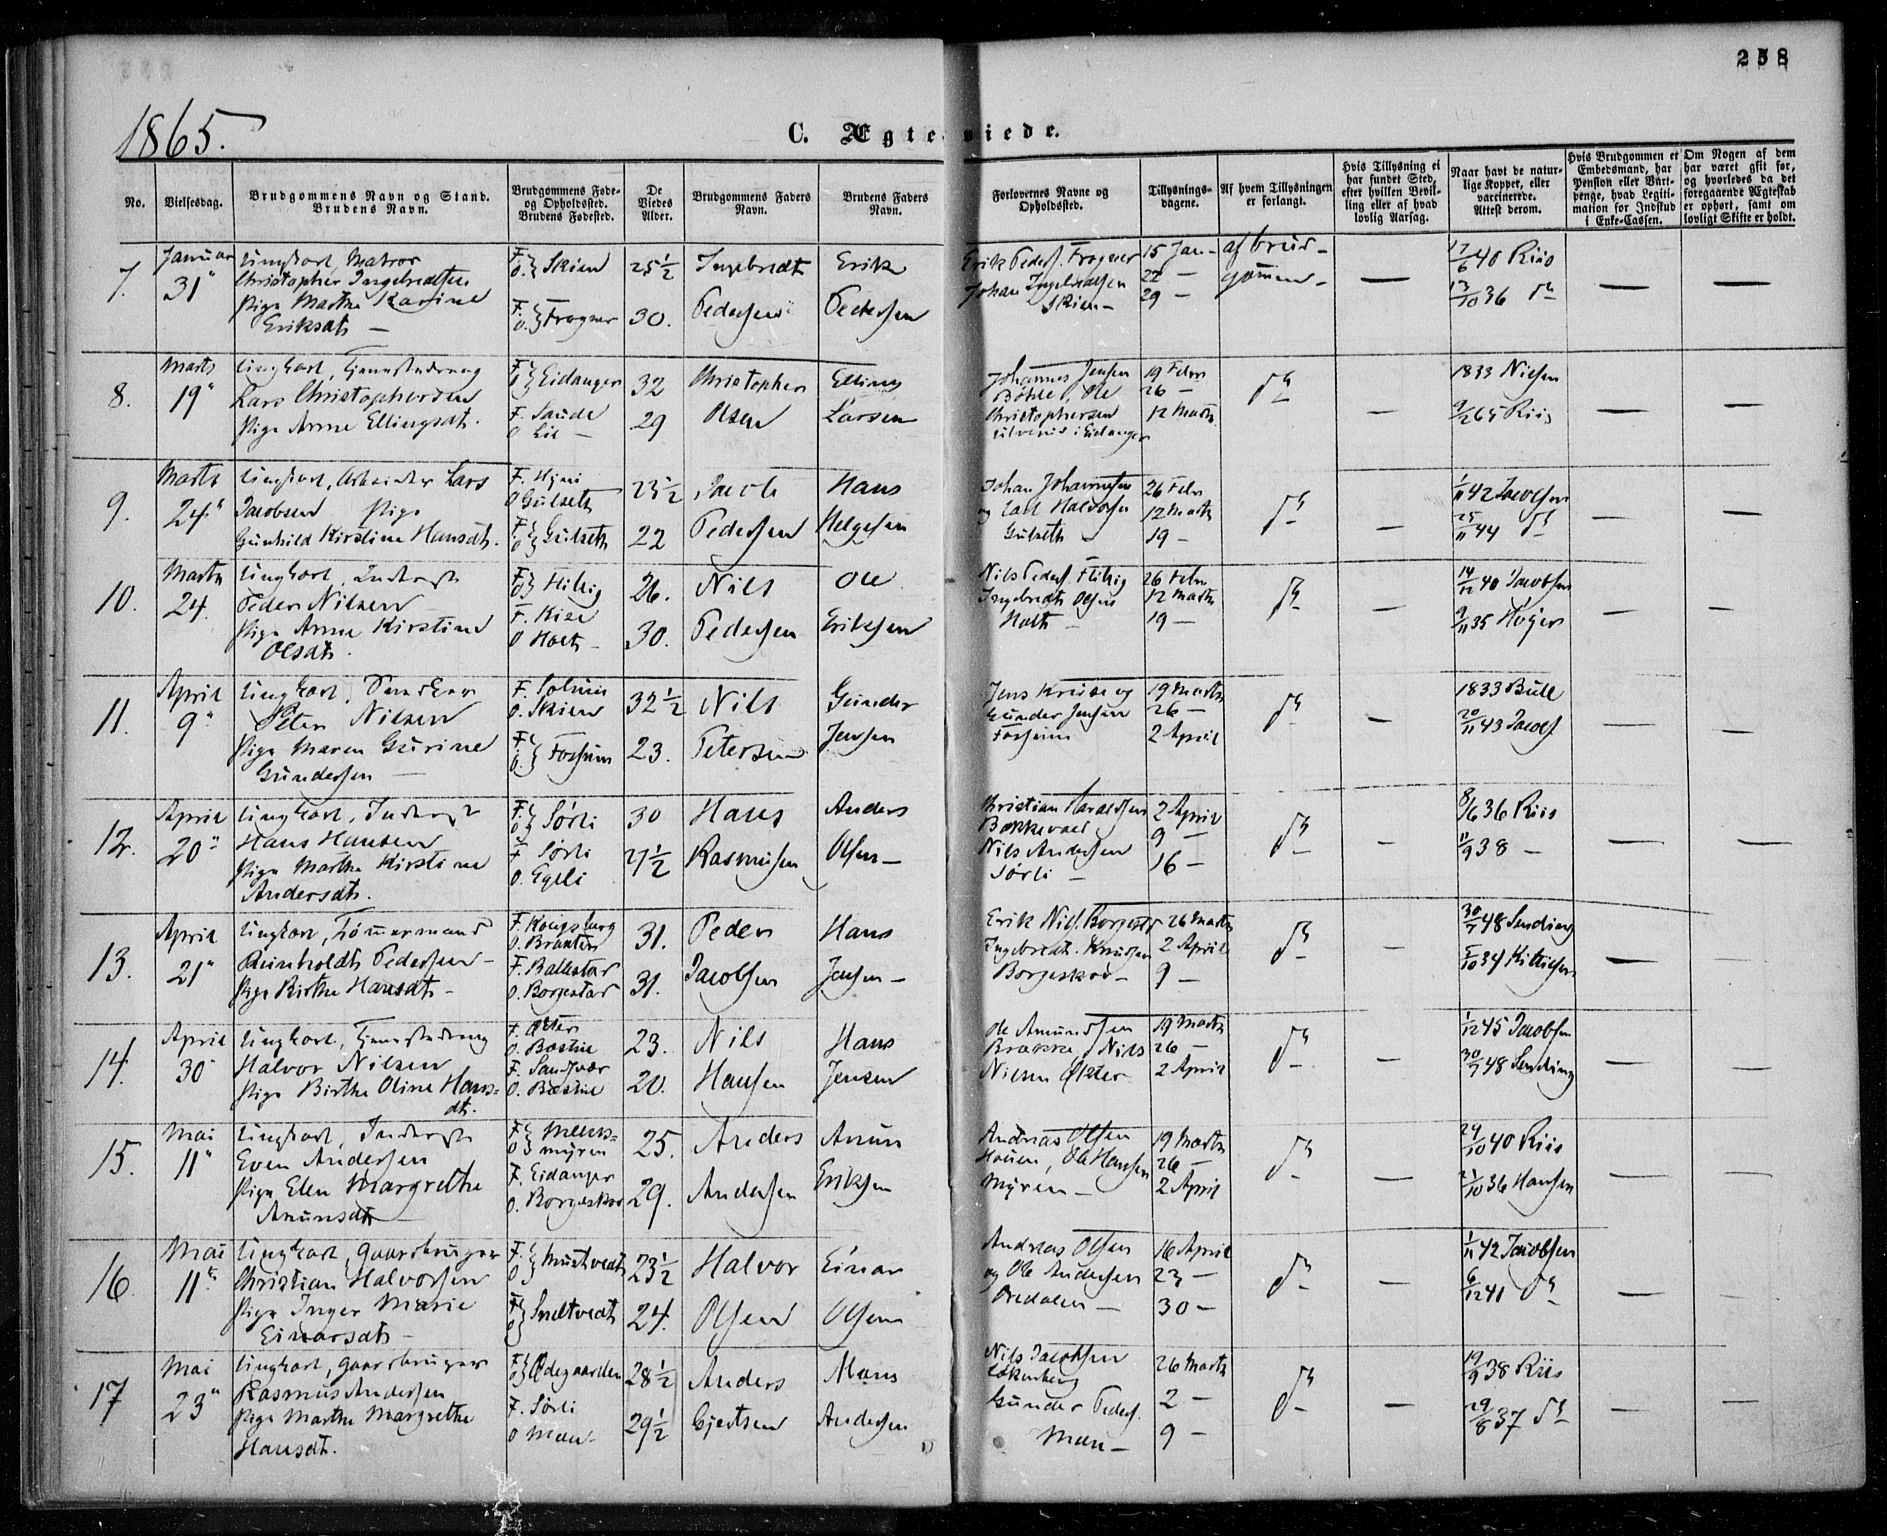 258
1865.
C. Ægteviede.
No.
Vielsesdag.
Brudgommens Navn og Stand.
Brudens Navn.
Brudgommens Føde-
og Opholdssted.
Brudens Fødested.
De
Viedes
Alder.
Brudgommens Faders
Navn.
Brudens Faders
Navn.
Forlovernes Navne og
Opholdssted.
Tillysnings-
dagene.
Af hvem Tillysningen
er forlangt.
Hvis Tillysning ei
har fundet Sted,
efter hvilken Bevil-
ling eller af hvad
lovlig Aarsag.
Naar havt de natur-
lige Kopper, eller
vaccinerede.
Attest derom.
Hvis Brudgommen er
Embedsmand, har
Pension eller Vart-
penge, hvad Legiti-
mation for Indskud
i Enke-Cassen.
Om Nogen af dem
har været gift før,
og hvorledes da det
foregaaende Ægteskab
er ophørt, samt om
lovligt Skifte er holdt.
7. Januar 31 Ungkarl, Matros
Christopher Ingebredtsen
Pige Marthe Karine
Eriksdt. —
F. O. } Skien 25½ Ingebredt Erik
F. O. } Frogner 30. Pedersen Pedersen
Erik Peders. Frogner 15 Jan - af brud-
Johan Ingebredtsen 22 — gommen
Skien — 29 —
17/6 40 Riis
13/10 36 do
8. Marts 19 Ungkarl, Tjenestedreng
Lars Christophersen
Pige Anne Ellingsdt.
F. O. } Eidanger 32 Christopher Elling
F. Saude 29 Olsen Larsen
O. Lie —
Johannes Jensen 19 Febr
Bøhle, Ole 26 — do
Christophersen 12 Marts
i Eidanger
1833 Nielsen
65 Riis
9. Marts 24 Ungkarl, Arbeider Lars
Jacobsen Pige
Gunhild Kirstine Hansdt.
F. Hjni
O. Gulseth 23½ Jacob Hans
F. O. } Gulseth 22 Pedersen Helgesen
Johan Johannesen 26 Febr
og Carl Halvorsen 12 Marts do
Gulseth 19 —
1/11 42 Jacobsen
25/11 44 do
10. Marts 24. Ungkarl, Inderst
Peder Nilsen
Pige Anne Kirstine
Olsdt.
F. O. } Flittig 26. Nils Ole
F. Kise
O. Holt — 30. Pedersen Eriksen
Nils Peders. Flittig 26 Febr
Ingebredt Olsen 12 Marts do
Holt — 19 —
14/12 40 Jacobsen
9/11 35 Høyer
11. April 9 Ungkarl, Snedker
Peter Nilsen
Pige Maren Gurine
Gundersen —
F. Solum
O. Skien 32½ Nils Gunder
F. O. } Fossum 23. Petersen Jensen
Jens Kruse og 19 Marts
Gunder Jensen 26 — do
Fossum 2 April
1833 Bull
20/11 43 Jacobs
12. April 20 Ungkarl, Inderst
Hans Hansen
Pige Marthe Kirstine
Andersdt.
F. O. } Sørli 30 Hans Anders
F. Sørli
O. Egeli 27½ Rasmusen Olsen —
Christian Haraldsen 2 April
Bakkevald 9 — do
Nils Andersen 16 —
Sørli —
8/6 36 Riis
11/9 38 —
13. April 21 Ungkarl, Tømmermand
Reinholdt Pedersen —
Pige Birthe Hansdt. —
F. Kongsberg
O. Bratten 31. Peder Hans
F. Ballestad
O. Borgestad 31. Jacobsen Jensen —
Erik Nils. Borgestd 26 Marts
Ingebredt Knudsen 2 April do
Borgeskov — 9 —
30/7 48 Sending
5/10 34 Kittilsen
14. April 30 Ungkarl, Tjenestedreng
Halvor Nilsen
Pige Birthe Oline Hans-
dt.
F. Øter
O. Bøstue 23. Nils Hans
F. Sandsvær
O. Bøstue 20. Hansen Jensen
Ole Amundsen 19 Marts
Brække, Nils 26 — do
Nilsen Økter 2 April
1/12 45 Jacobsen
30/7 48 Sending
15. Mai 11 Ungkarl, Inderst
Even Andersen
Pige Elen Margrethe
Amunsdt
F. O. } Meens-
myren 25. Anders Amun
F. Eidanger
O. Borgeskov 29. Andersen Eriksen
Andreas Olsen 19 Marts
Houen, Ole Hansen 26 — do
Myren — 2 April
24/10 40 Riis
21/10 36 Hansen
16. Mai 11 Ungkarl, Gaardbruger
Christian Halvorsen
Pige Inger Marie
Einarsdt —
F. O. } Mustvedt 23½ Halvor Einar
F. O. } Smetvedt 24. Olsen Olsen
Andreas Olsen 16 April
og Ole Andersen 23 — do
Bredalen — 30 —
1/11 42 Jacobsen
6/12 41 do
17 Mai 23 Ungkarl, Gaardbruger
Rasmus Andersen
Pige Marthe Margrethe
Hansdt.
F. O. } Ødegaarden 28½ Anders Hans
F. Sørli
O. Mæn 29½ Gjertsen Andersen
Nils Jacobsen 26 Marts
Løkenberg 2 — do
Gunder Peders. 9 —
Mæn —
19/9 38 Riis
29/8 37 do